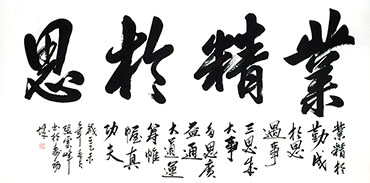 業精於思
業精於
勤成
於思
遇事
三思成
大事
多思廣
益通
大道運
籌帷
幄真
功夫